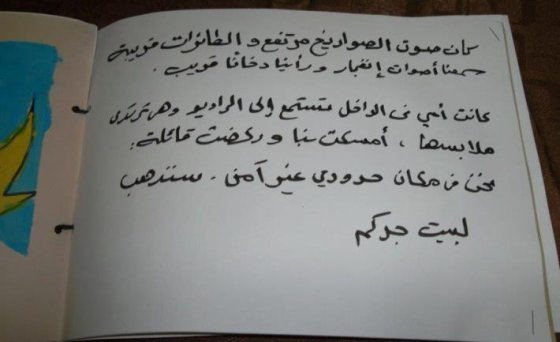 كان صوت الصواريخ مرتفع و الطائرات قريبة
سمعنا أصوات إنفجار و رأينا دخانًا قريب .
كانت أمي في الداخل تستمع إلى الراديو وهي ترتدي
ملابسها ، أمسكت بنا و ركضت قائلة :
نحن في مكان حدودي غير آمن . سنذهب
لبيت جدكم